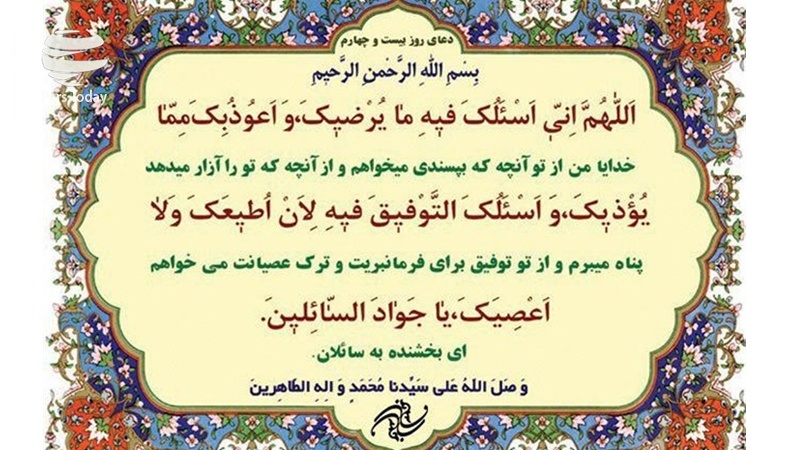 دعای روز بیست و چهارم
بِسْمِ اللهِ الرَّحْمنِ الرَّحیمِ
اَللّهُمَّ اِنّی اَسْئَلُکَ فیهِ ما یُرْضیکَ،وَ اَعُوذُبِکَ مِمّا
خدایا من از تو آنچه که بپسندی میخواهم و از آنچه که تو را آزار میدهد
یُؤْذیکَ،وَ اَسْئَلُکَ التَّوْفیقَ فیهِ لِاَنْ اُطیعَکَ وَلا
پناه میبرم و از تو توفیق برای فرمانبریت و ترک عصیانت می خواهم
اَعْصِیَکَ،یا جَوادَ السّائِلینَ.
ای بخشنده به سائلان.
وَ صَلَ اللهُ عَلی سَیِّدِنا مُحَمَدٍ وَ الِهِ الطّاهِرینَ
Today